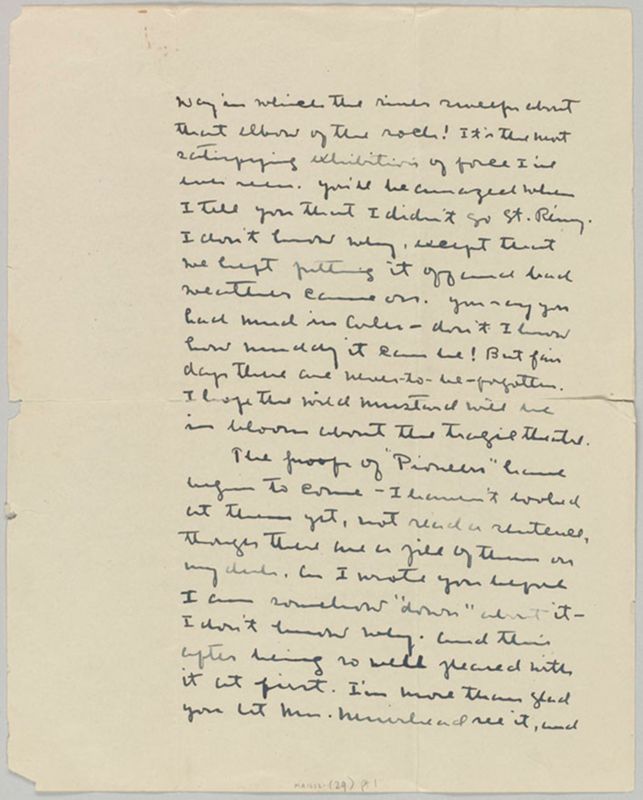 way in which the river sweeps about
that elbow of the rock! It's the most
satisfying exhibition of force I've
ever seen. You'll be amazed when
I tell you that I didn't go St. Rémy.
I don't know why, except that
we kept putting it off and bad
weather came on. You say you
had mud in Arles - don't I know
how muddy it can be! But fair
days there are never-to-be-forgotten.
I hope the wild mustard will be
in bloom about the tragic theatre.
The proofs of "Pioneers" have
begun to come - I haven't looked
at them yet, not read a sentence,
though there are a pile of them on
my desk. As I wrote you before
I am somehow "down" about it -
I don't know why. And this
after being so well pleased with
it at first. I'm more than glad
you let Mrs. Muirhead see it, and
(29) p 1